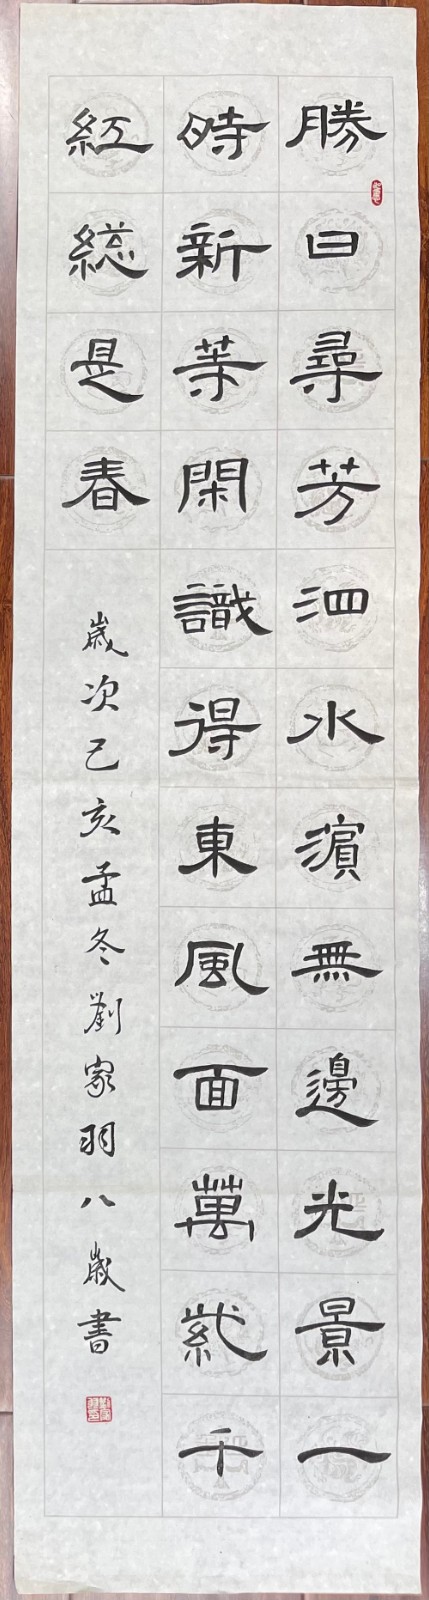 勝日尋芳泗水濱無邊光景一
時新等閑識得東風面萬紫千
紅総是春
歲次己亥孟冬劉家羽八歲書